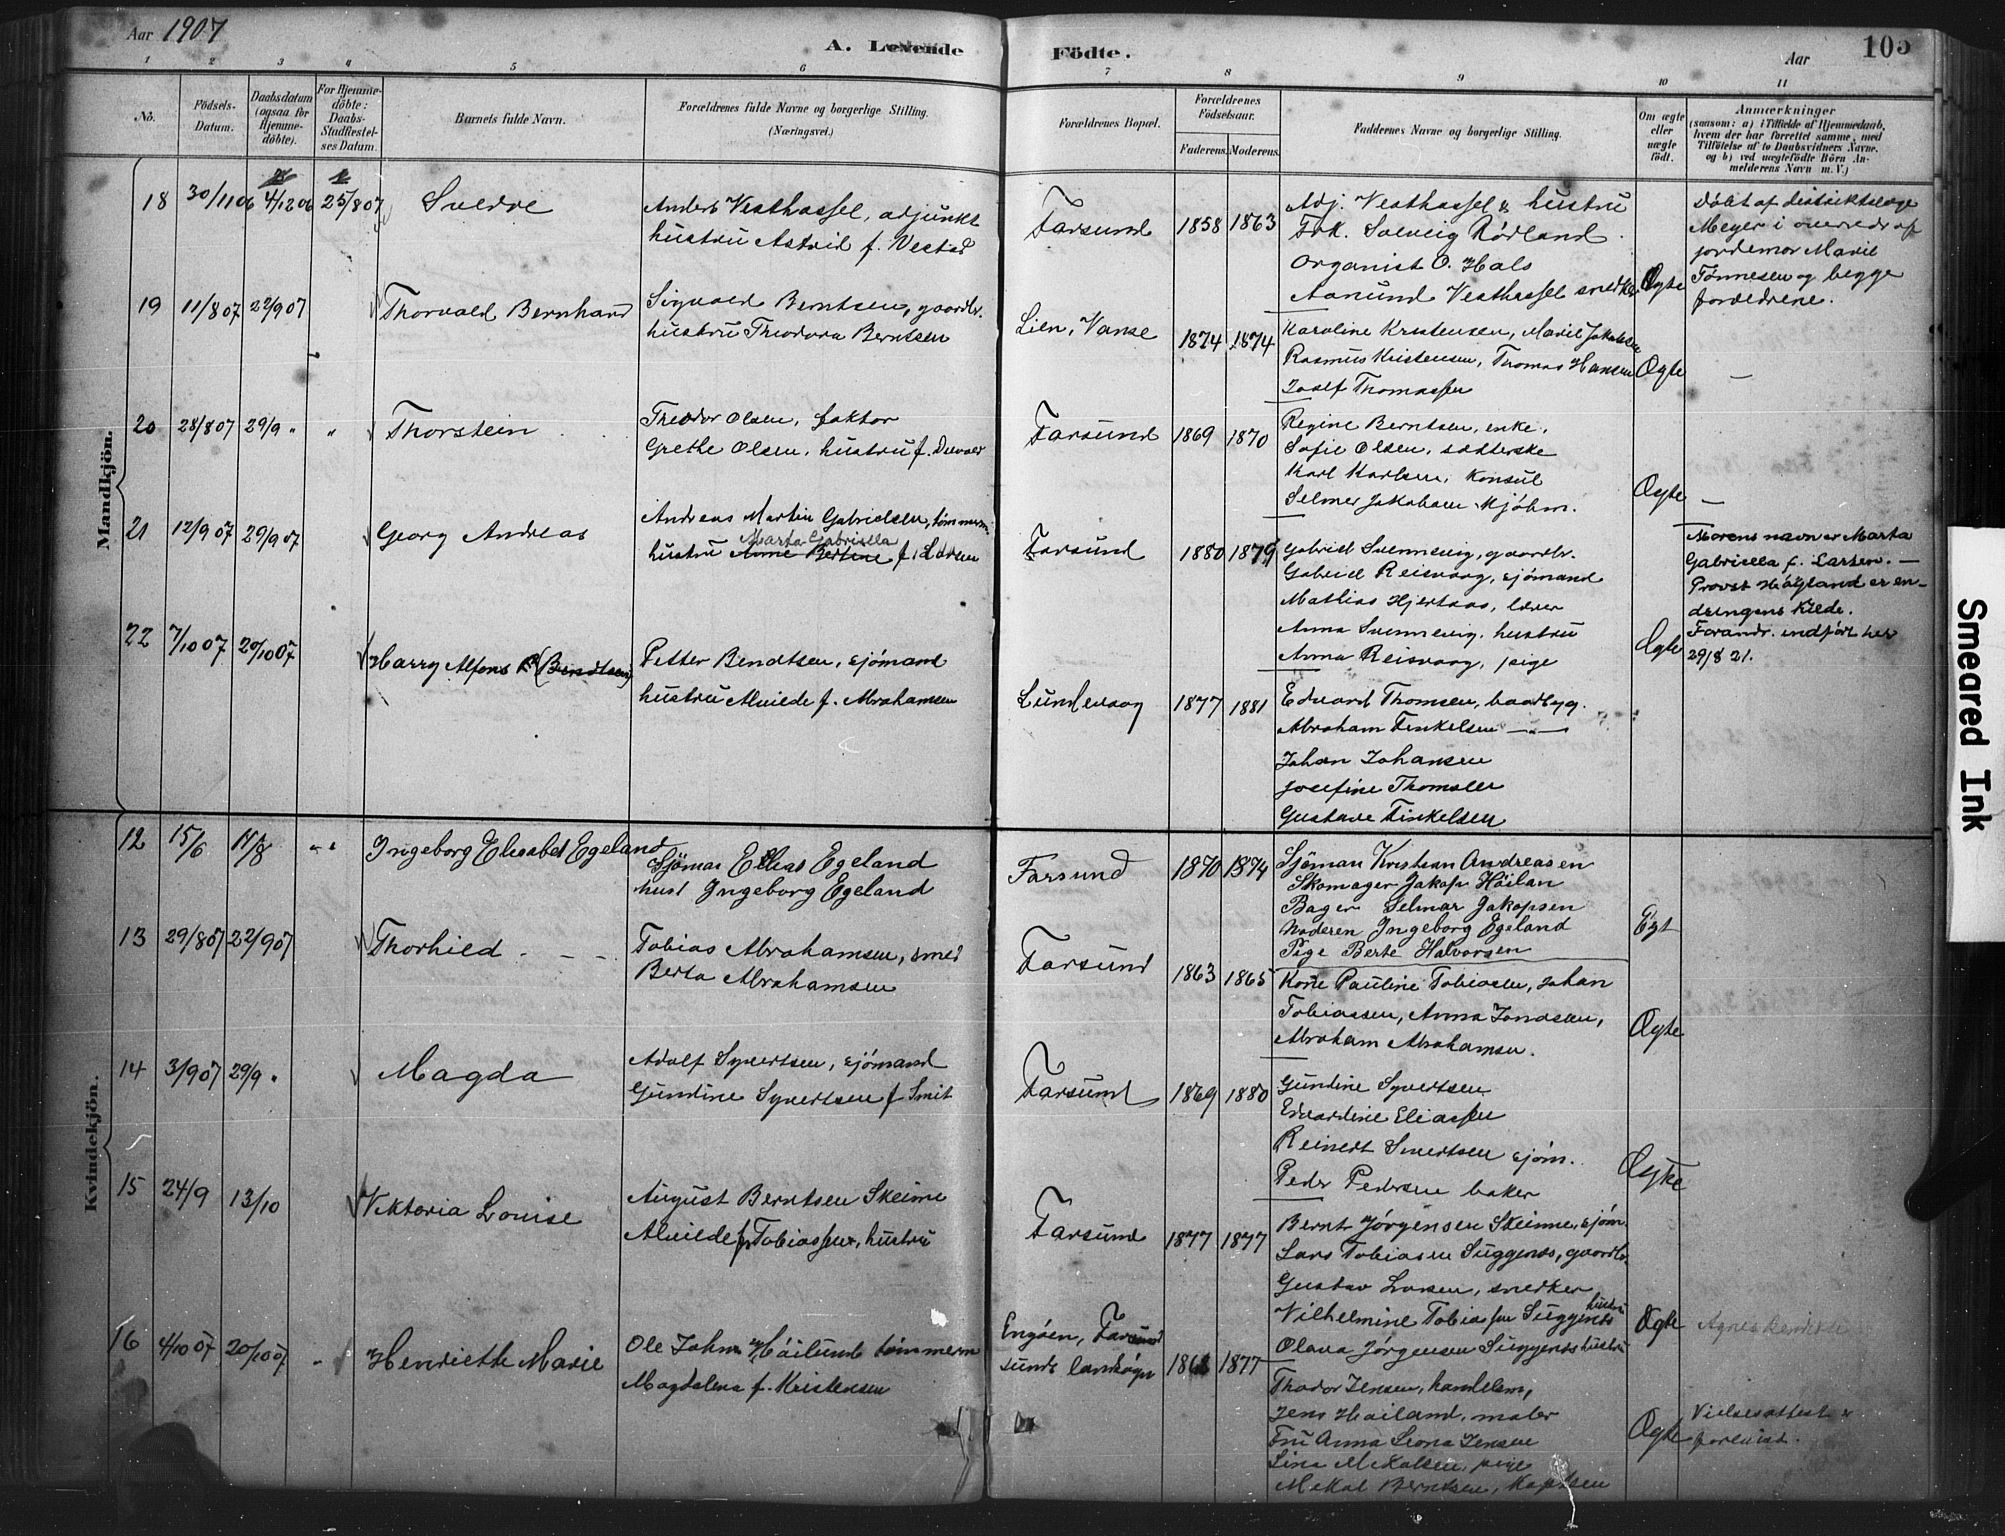 Aar 1907
A. Levende Födte.
Aar
105
1 2 3 4 5 6 7 8 9 10 11
No.
Födsels-
Datum.
Daabsdatum
(ogsaa for
Hjemme-
döbte).
For Hjemme-
döbte:
Daabs-
Stadfæstel-
ses Datum.
Barnets fulde Navn.
Forældrenes fulde Navne og borgerlige Stilling.
(Næringsvei.)
Forældrenes Bopæl.
Forældrenes
Födselsaar.
Faderens. Moderens.
Faddernes Navne og borgerlige Stilling.
Om ægte
eller
uægte
født.
Anmærkninger
(saasom: a) i Tilfælde af Hjemmedaab,
hvem der har forrettet samme, med
Tilföielse af to Daabsvidners Navne,
og b) ved uægtefödte Börn An-
melderens Navn m. V.)
Mandkjön.
18 30/11 06 4/12 06 25/8 07 Sverre
Anders Vesthassel, adjunkt
hustru Astrid f. Vestad
Farsund 1858 1863
Adj. Vesthassel & hustru
Frk. Solveig Rødland
Organist O. Hals
Aanund Vesthassel snedker
Ægte
Døbt af distriktslæge
Meyer i overvær af
jordemor Marie
Tønnesen og begge
forældrene.
19 11/8 07 22/9 07 Thorvald Bernhard
Sigvald Berntsen, gaardbr.
hustru Theodora Berntsen
Lien, Vanse 1874 1874
Karoline Kristensen, Marie Jakobsen
Rasmus Kristensen, Thomas Hansen
Toalf Thomassen
Ægte —
20 28/8 07 29/9 " " Thorstein
Theodor Olsen, faktor
Grethe Olsen, hustru f. Duvald
Farsund 1869 1870
Regine Berntsen, enke.
Sofie Olsen, sætterske
Karl Karlsen, Konsul
Selmer Jakobsen kjøbm.
Ægte —
21 12/9 07 29/9 07 Georg Andreas
Andreas Martin Gabrielsen, tømmerm.
Marta Gabriella
hustru Anne Bertine f. Larsen
Farsund 1880 1879
Gabriel Svennevig, gaardbr.
Gabriel Reisvaag, sjømand
Mathias Hjertaas, lærer
Anna Svennevig, hustru
Anna Reisvaag, pige
Ægte
Morens navn er Marta
Gabriella f. Larsen. —
Provst Höyland er en-
dringens kilde.
Forandr. indført her
29/8 21.
22 7/10 07 20/10 07 Harry Alfons (Bendtsen)
Petter Bendtsen, sjømand
hustru Alvilde f. Abrahamsen
Lundevaag 1877 1881
Edvard Thomsen, baadbyg.
Abraham Finkelsen — " —
Johan Johansen
Josefine Thomsen
Gustave Finkelsen
Kvindekjön.
12 15/6 11/8 " " Ingeborg Elisabet Egeland
Sjöman Elias Egeland
hust Ingeborg Egeland
Farsund 1870 1874
Sjöman Kristian Andreasen
Skomager Jakop Höilan
Bager Selmar Jakopsen
Moderen Ingeborg Egeland
Pige Berte Halvorsen
Egt
13 29/8 07 22/9 07 Thorhild
Tobias Abrahamsen, smed
Berta Abrahamsen
Farsund 1863 1865
Kone Pauline Tobiasen, Johan
Tobiassen, Anna Jonassen,
Abraham Abrahamsen.
Ægte
14 3/9 07 29/9 " Magda
Adolf Syvertsen, sjømand
Gundine Syvertsen f Smit
Farsund 1869 1880
Gundine Syvertsen
Edvardine Eliassen
Reinert Sivertsen sjøm.
Peder Pedersen baker
Ægte
15 24/9 13/10 Viktoria Louise
August Berntsen Skeime
Alvilde f. Tobiassen, hustru
Farsund 1877 1877
Bernt Jørgensen Skeime, sjøm.
Lars Tobiasen Suggenes, gaardbr.
Gustav Larsen, snedker
Vilhelmine Tobiassen Suggenes hustru
Olava Jørgensen Suggenes hustru
Ægte
16 4/10 07 20/10 07 " Henriette Marie
Ole Johan Höilund tømmerm
Magdalena f. Kristensen
Engøen, Far
sunds landsogn 1877
Thodor Jensen, handelsm,
Jens Høiland, maler
Fru Anna Leona Jensen
Lina Mikalsen, pige
Mikal Berntsen, Kaptein
Ægte
Vielsesattest
forevist.
Smeared Ink